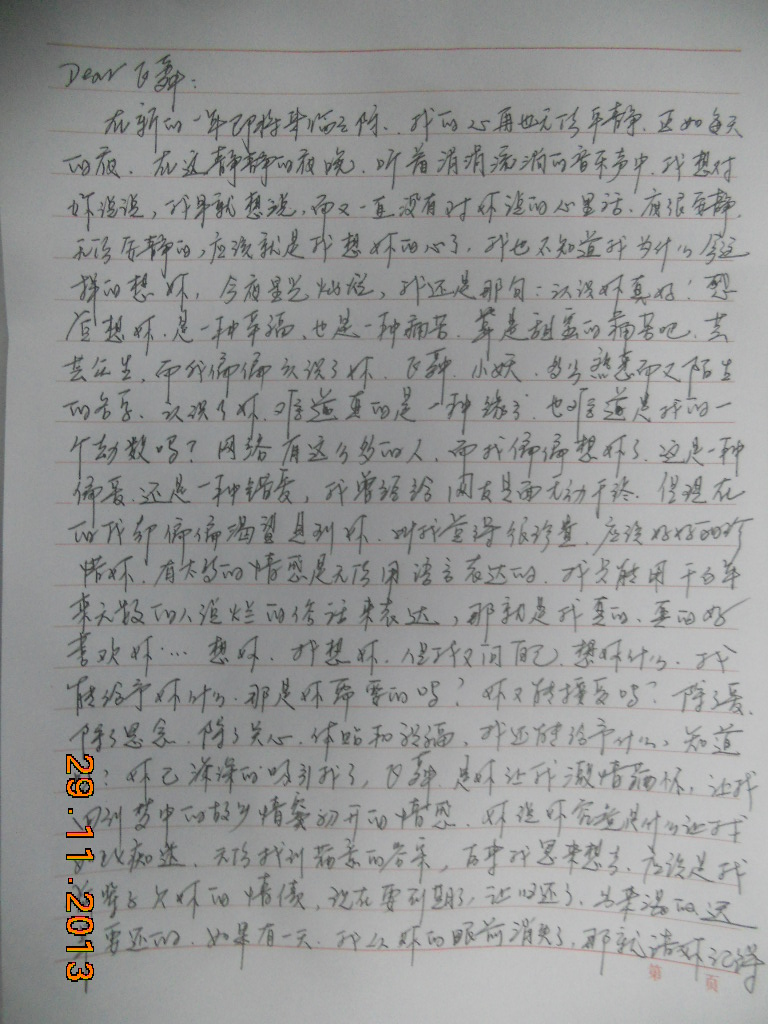 Dear 飞舞:
在新的一年即将来临之际、我的心再也无法平静、正如每天
的夜、在这静静的夜晚、听着涓涓流淌的音乐声中、我想对
妳说说，我早就想说，而又一直没有对妳说的心里话、夜很安静、
无法安静的，应该就是我想妳的心了、我也不知道我为什么会这
样的想妳，今夜星光灿烂，我还是那句：认识妳真好！
想妳、是一种幸福、也是一种痛苦、算是甜蜜的痛苦吧、芸
芸众生，而我偏偏认识了妳、飞舞、小妖、多么熟悉而又陌生
的名字、认识了妳、难道真的是一种缘分、也难道是我的一
个劫数吗？网络有这么多的人、而我偏偏想妳了、这是一种
偏爱、还是一种错爱，我曾经给网友见面无动于终、但现在
的我却偏偏渴望见到妳、叫我觉得很珍贵、应该好好的珍
惜妳、有太多的情感是无法用语言表达的、我只能用千百年
来无数的人说烂的俗话来表达，那就是我真的、真的好
喜欢妳…… 想妳、我想妳、但我又问自己、想妳什么、我
能给予妳什么、那是妳需要的吗？妳又能接受吗？除了爱、
除了思念、除了关心、体贴和祝福、我还能给予什么，知道
？妳已深深的吸引我了，飞舞、是妳让我激情满怀、让我
回到梦中的故乡情窦初开的情感、妳说妳究竟是什么让我
痴迷、无法找到满意的答案，后来我思来想去、应该是我
欠妳的情债、现在要到期了，让归还了、出来混的迟
要还的、如果有一天、我从妳的眼前消失了、那就请妳记得
第 页
29.11.2013